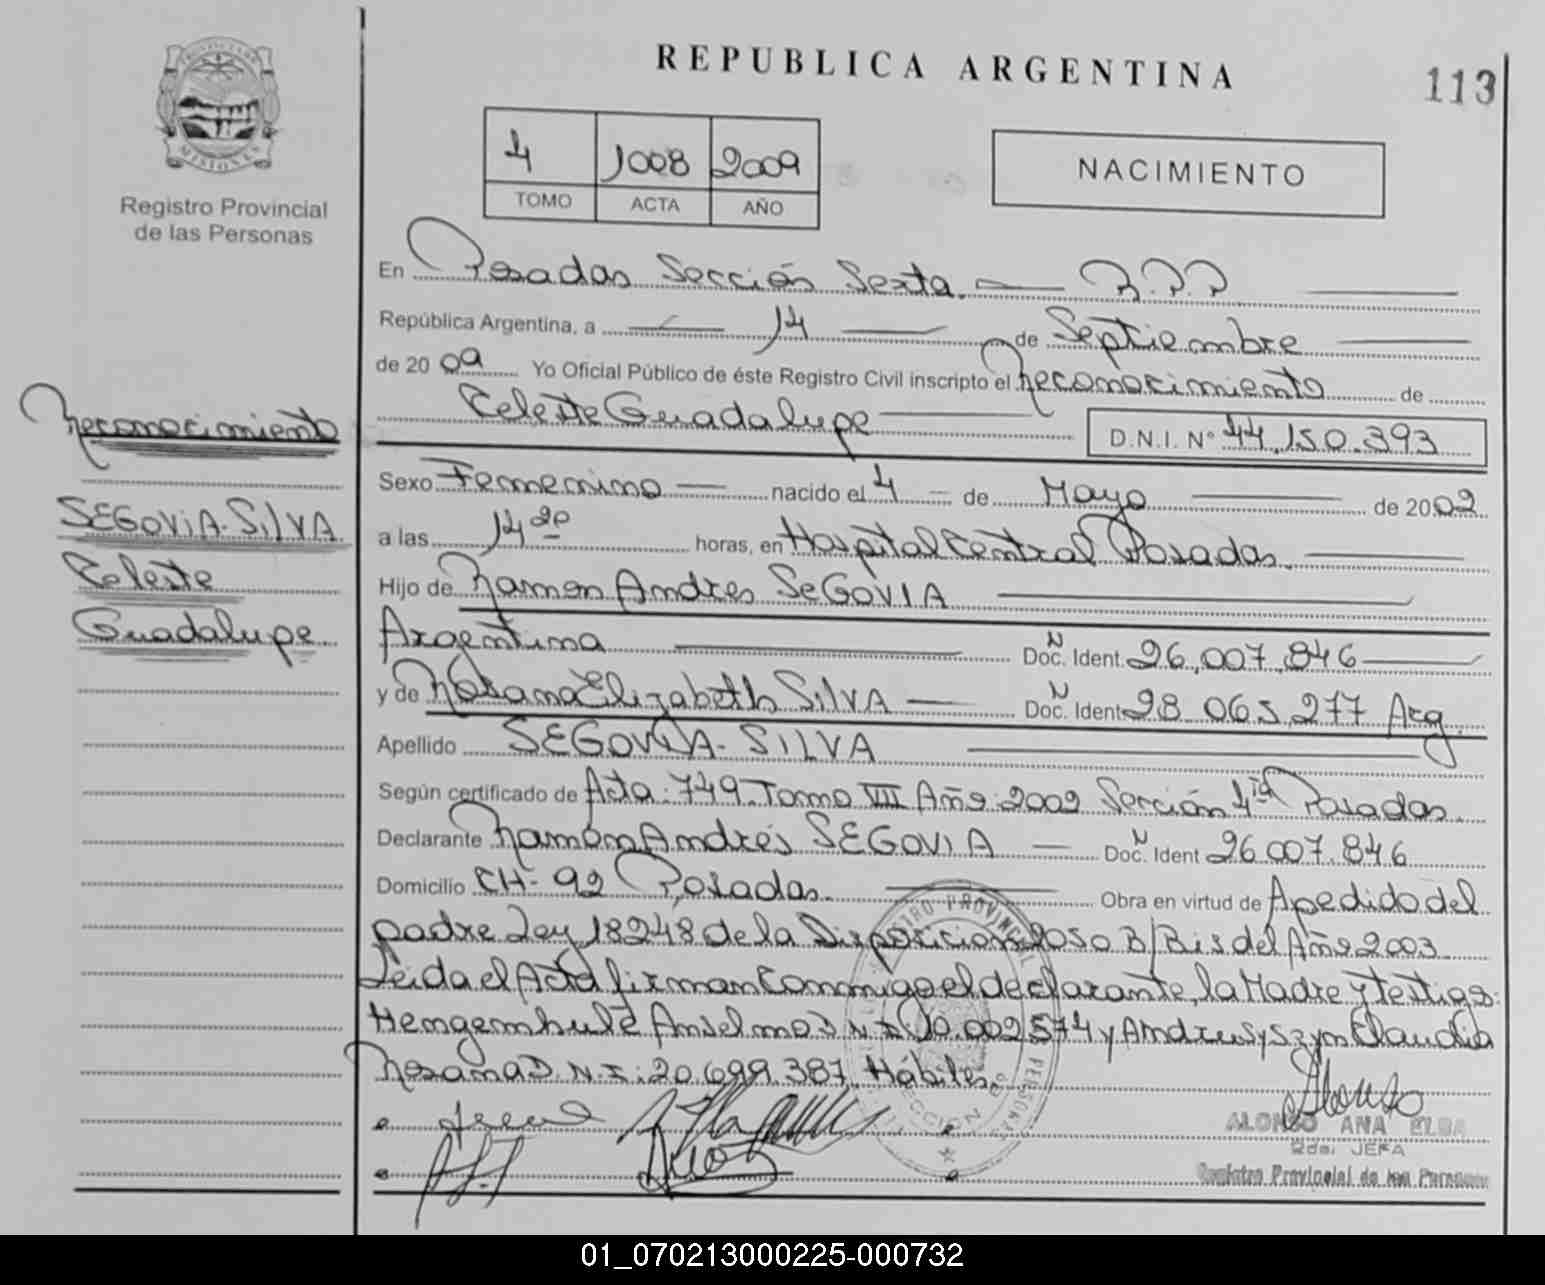 REPUBLICA ARGENTINA
113
PROVINCIA DE
MISIONES
Registro Provincial
de las Personas
4 1008 2009
TOMO ACTA AÑO
NACIMIENTO
En Posadas Sección Sexta. R.P.P.
República Argentina, a 14 de Septiembre
de 2009 Yo Oficial Público de éste Registro Civil inscripto el Reconocimiento de
Celeste Guadalupe D.N.I. N° 44.150.393
Reconocimiento
SEGOVIA-SILVA
Celeste
Guadalupe
Sexo Femenino nacido el 4 de Mayo de 2002
a las 14 20 horas, en Hospital Central Posadas.
Hijo de Ramon Andres SEGOVIA
Argentina Doc. N Ident. 26.007.846
y de Rosana Elizabeth SILVA Doc. N Ident 28.065.277 Arg.
Apellido SEGOVIA-SILVA
Según certificado de Acta: 749. Tomo VIII Año: 2002 Sección 4ta Posadas.
Declarante Ramón Andrés SEGOVIA Doc. N Ident 26.007.846
Domicilio CH-92 Posadas. Obra en virtud de A pedido del
padre Ley 18248 de la Disposicion 2050 B/Bis del Año 2003.
Leida el Acta firman Conmigo el declarante, la Madre y testigos:
Hengemhule Anselmo D.N.I. 10.002574 y Andrusyszyn Claudia
Rosana D.N.I: 20.699.387. Hábiles.
ALONSO ANA ELBA
2da. JEFA
Registro Provincial de las Personas
01_070213000225-000732